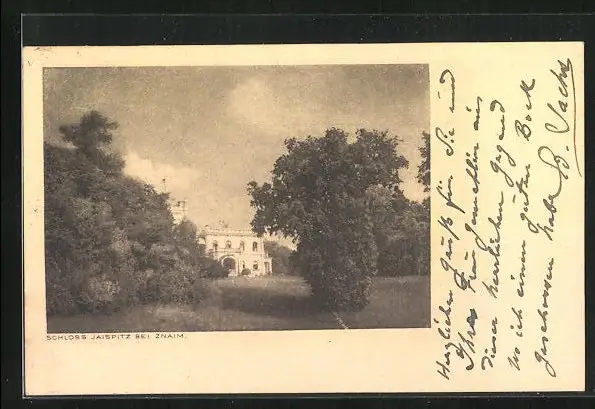 SCHLOSS JAISPITZ BEI ZNAIM.
Herzlichen Gruß für Sie und
Ihre Frau Gemahlin aus
dieser herrlichen Gegend
wo ich einen guten Bock
geschossen habe
B. Sachs